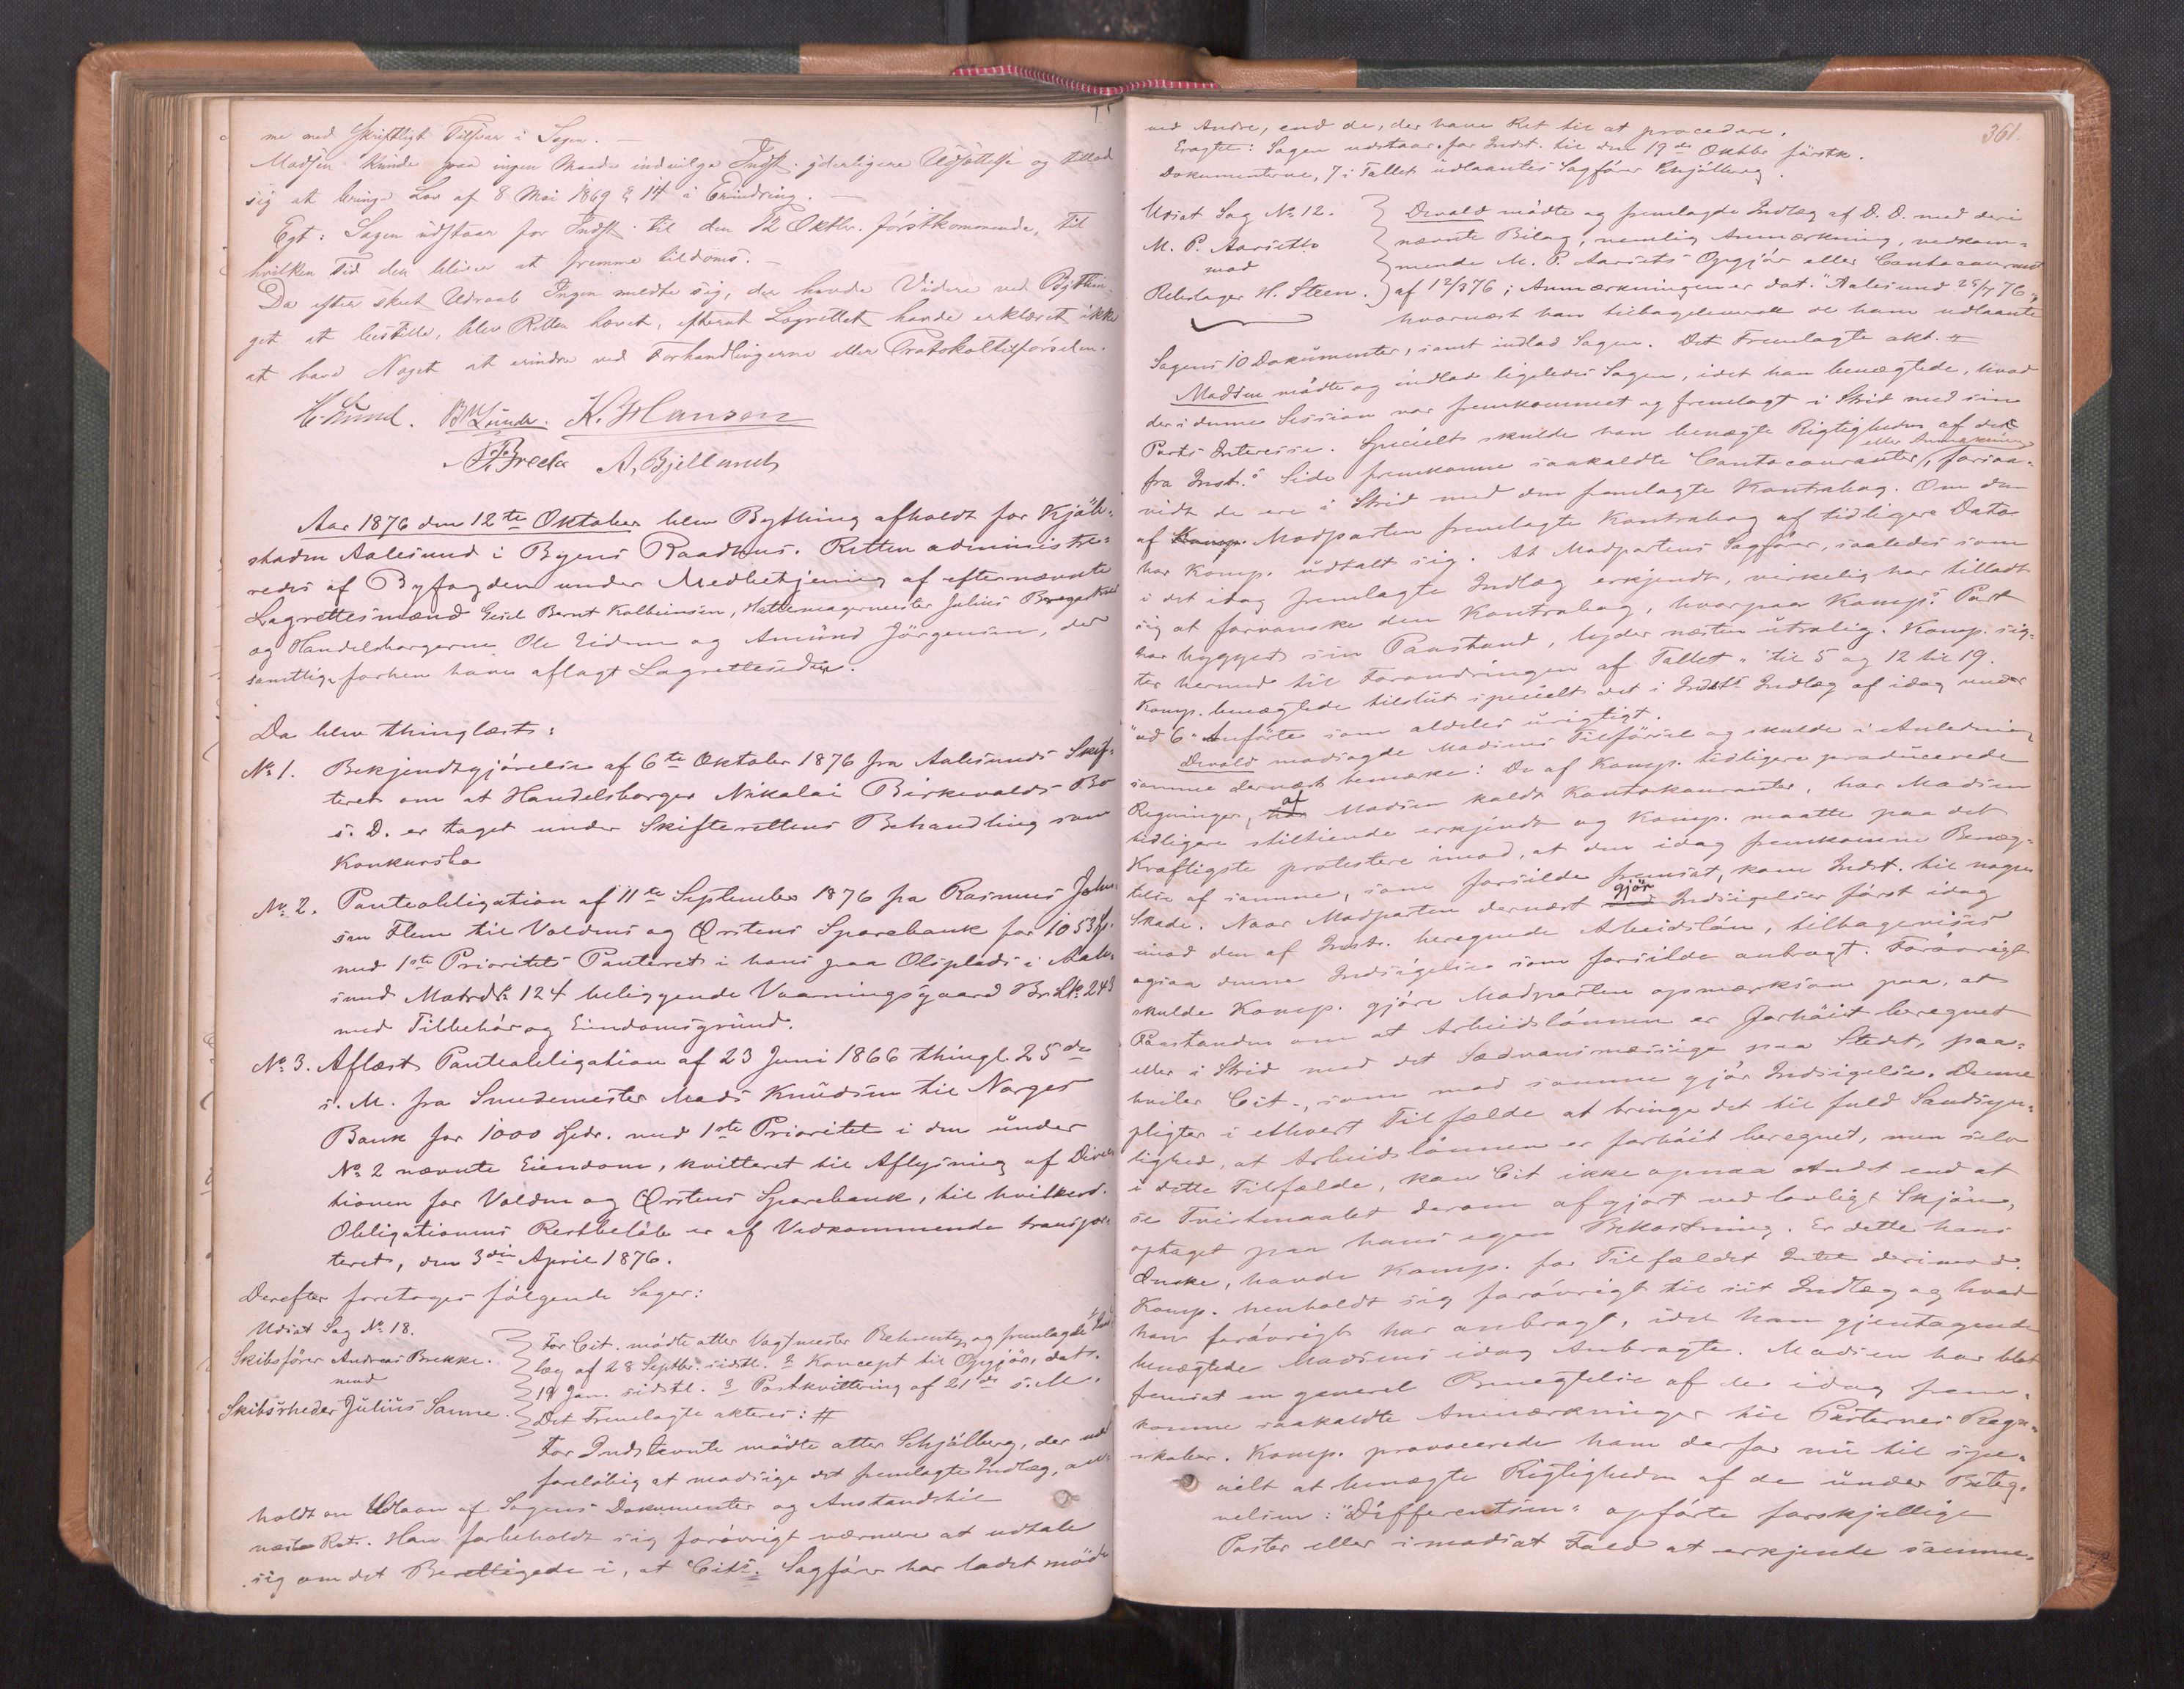 me med skriftligt Tilsvar i Sagen. —
Madsen kunde paa ingen Maade indvilge Indst. yderligere Udsættelse og tillod
sig at bringe Lov af 8 Mai 1869 § 14 i Erindring. —
Egt: Sagen udstaar for Indst. til den 12 Oktbr. förstkommende, til
hvilken Tid den bliver at fremme tildoms. —
Da efter skeet Udraab Ingen meldte sig, der havde Videre ved Bythin-
get at bestille, blev Retten hævet, efterat Lagrettet havde erklæret ikke
at have Noget at erindre ved Forhandlingerne eller Protokoltilförselen.
K. Hanson
A. Bjellund
Aar 1876 den 12te Oktober blev Bything afholdt for Kjöb-
staden Aalesund i Byens Raadhus. Retten administre-
redes af Byfogden under Medbetjening af efternævnte
Lagrettesmænd Bernt Kolbeinsen, Hattemagermester Julius
og Handelsborgerne Ole Eidem og Amund Jörgensen, der
samtlige forhen have aflagt Lagretteseden.
Da blev thinglæst:
No 1. Bekjendtgjörelse af 6te Oktober 1876 fra Aalesunds Skif-
teret om at Handelsborger Nikolai Birkevolds Bo
s. D. er taget under Skifterettens Behandling som
Konkursbo
No 2. Panteobligation af 11te September 1876 fra Rasmus John-
sen Flem til Voldens og Örstens Sparebank for 1053
med 1ste Prioritets Panteret i hans paa Olsplads i Aale-
sund Matr. No 124 beliggende Vaaningsgaard Br. No 243
med Tilbehör og Eiendomsgrund.
No 3. Aflæst Panteobligation af 23 Juni 1866 thingl. 25de
s. M. fra Smedemester Mads Knudsen til Norges
Bank for 1000 Spdr. med 1ste Prioritet i den under
No 2 nævnte Eiendom, kvitteret til Aflysning af Direk-
tionen for Volden og Örstens Sparebank, til hvilken
Obligationens Restbelöb er af Vedkommende transpor-
teret, den 3die April 1876.
Derefter foretoges fölgende Sager:
Udsat Sag No 18.
Skibsförer Andreas Brekke.
mod
Skibsrheder Julius Sanne.
For Cit. mödte atter Vagtmester Behrentz og fremlagde 1 Ind-
læg af 28 Septbr. sidstl. 2 Koncept til Opgjör, dat.
19 Jan. sidstl. 3 Postkvittering af 21de s. M.
Det Fremlagte akteres: #
For Indstevnte mödte atter Schjölberg, der ved
forelöbig at modsige det fremlagte Indlæg, an-
holdt om Udlaan af Sagens Dokumenter og Anstand til
næste Ret. Han forbeholdt sig forövrigt nærmere at udtale
sig om det Berettigede i, at Cits. Sagförer har ladet möde
361.
ved Andre, end de, der have Ret til at procedere.
Eragtet: Sagen udstaar for Indst. til den 19de Oktbr förstk.
Dokumenterne, 7 i Tallet udlaantes Sagförer Schjölberg.
Udsat Sag No 12.
M. P. Aarseth
mod
Rebslager H. Steen.
Devold mödte og fremlagde Indlæg af D. D. med deri
nævnte Bilag, nemlig Anmærkning, vedkom-
mende M. P. Aarseths Opgjör eller Contocourant
af 12/3 76; Anmærkningen er dat. "Aalesund 25/9 76",
hvornæst han tilbageleverede de ham udlaante
Sagens 10 Dokumenter, samt indlod Sagen. Det Fremlagte akt. #
Madsen mödte og indlod ligeledes Sagen, idet han benægtede, hvad
der i denne Session var fremkommet og fremlagt i Strid med sin
Parts Interesse. Specielt skulde han benægte Rigtigheden af det
fra Indst.s Side fremkomne saakaldte Contocouranter, eller Anmærkning forsaa-
vidt de ere i Strid med den fremlagte Kontrabog. Om den
af Komp. Modparten fremlagte Kontrabog af tidligere Dato
har Komp. udtalt sig. At Modpartens Sagförer, saaledes som
i det idag fremlagte Indlæg erkjendt, virkelig har tilladt
sig at forvanske den Kontrabog, hvorpaa Komp.s Part
har bygget sin Paastand, lyder næsten utrolig. Komp. sig-
ter hermed til Forandringen af Tallet " til 5 og 12 til 19.
Komp. benægtede tilslut specielt det i Indsts Indlæg af idag under
"ad 6" Anförte som aldeles urigtigt.
Devold modsagde Madsens Tilförsel og skulde i Anledning
samme dernæst bemærke: De af Komp. tidligere producerede
Regninger, af Madsen kaldt Kontokouranter, har Madsen
tidligere stiltiende erkjendt og Komp. maatte paa det
Kraftigste protestere imod, at den idag fremkomne Benæg-
telse af samme, som forsilde fremsat, kom Indst. til nogen
Skade. Naar Modparten dernæst gjör Indsigelser först idag
imod den af Indst. beregnede Arbeidslön, tilbagevises
ogsaa denne Indsigelse som forsilde anbragt. Forövrigt
skulde Komp. gjöre Modparten opmærksom paa, at
Paastanden om at Arbeidslönnen er forhöit beregnet
eller i Strid med det Sædvansmæssige paa Stedet, paa-
hviler Cit., som mod samme gjör Indsigelse. Denne
pligter i ethvert Tilfælde at bringe det til fuld Sandsyn-
lighed, at Arbeidslönnen er forhöit beregnet, men selv
i dette Tilfælde, kan Cit ikke opnaa Andet end at
se Tvistmaalet derom afgjort ved lovligt Skjön,
optaget paa hans egen Bekostning. Er dette hans
Önske, havde Komp. for Tilfældet Intet derimod.
Komp. henholdt sig forövrigt til sit Indlæg og hvad
han forövrigt har anbragt, idet han gjentagende
benægtede Madsens idag Anbragte. Madsen har blot
fremsat en generel Benegtelse af de idag frem-
komne saakaldte Anmærkninger til Parternes Regn-
skaber. Komp. provocerede ham derfor nu til spe-
cielt at benægte Rigtigheden af de under Beteg-
nelsen: "Differentsen" opförte forskjellige
Poster eller i modsat Fald at erkjende samme.